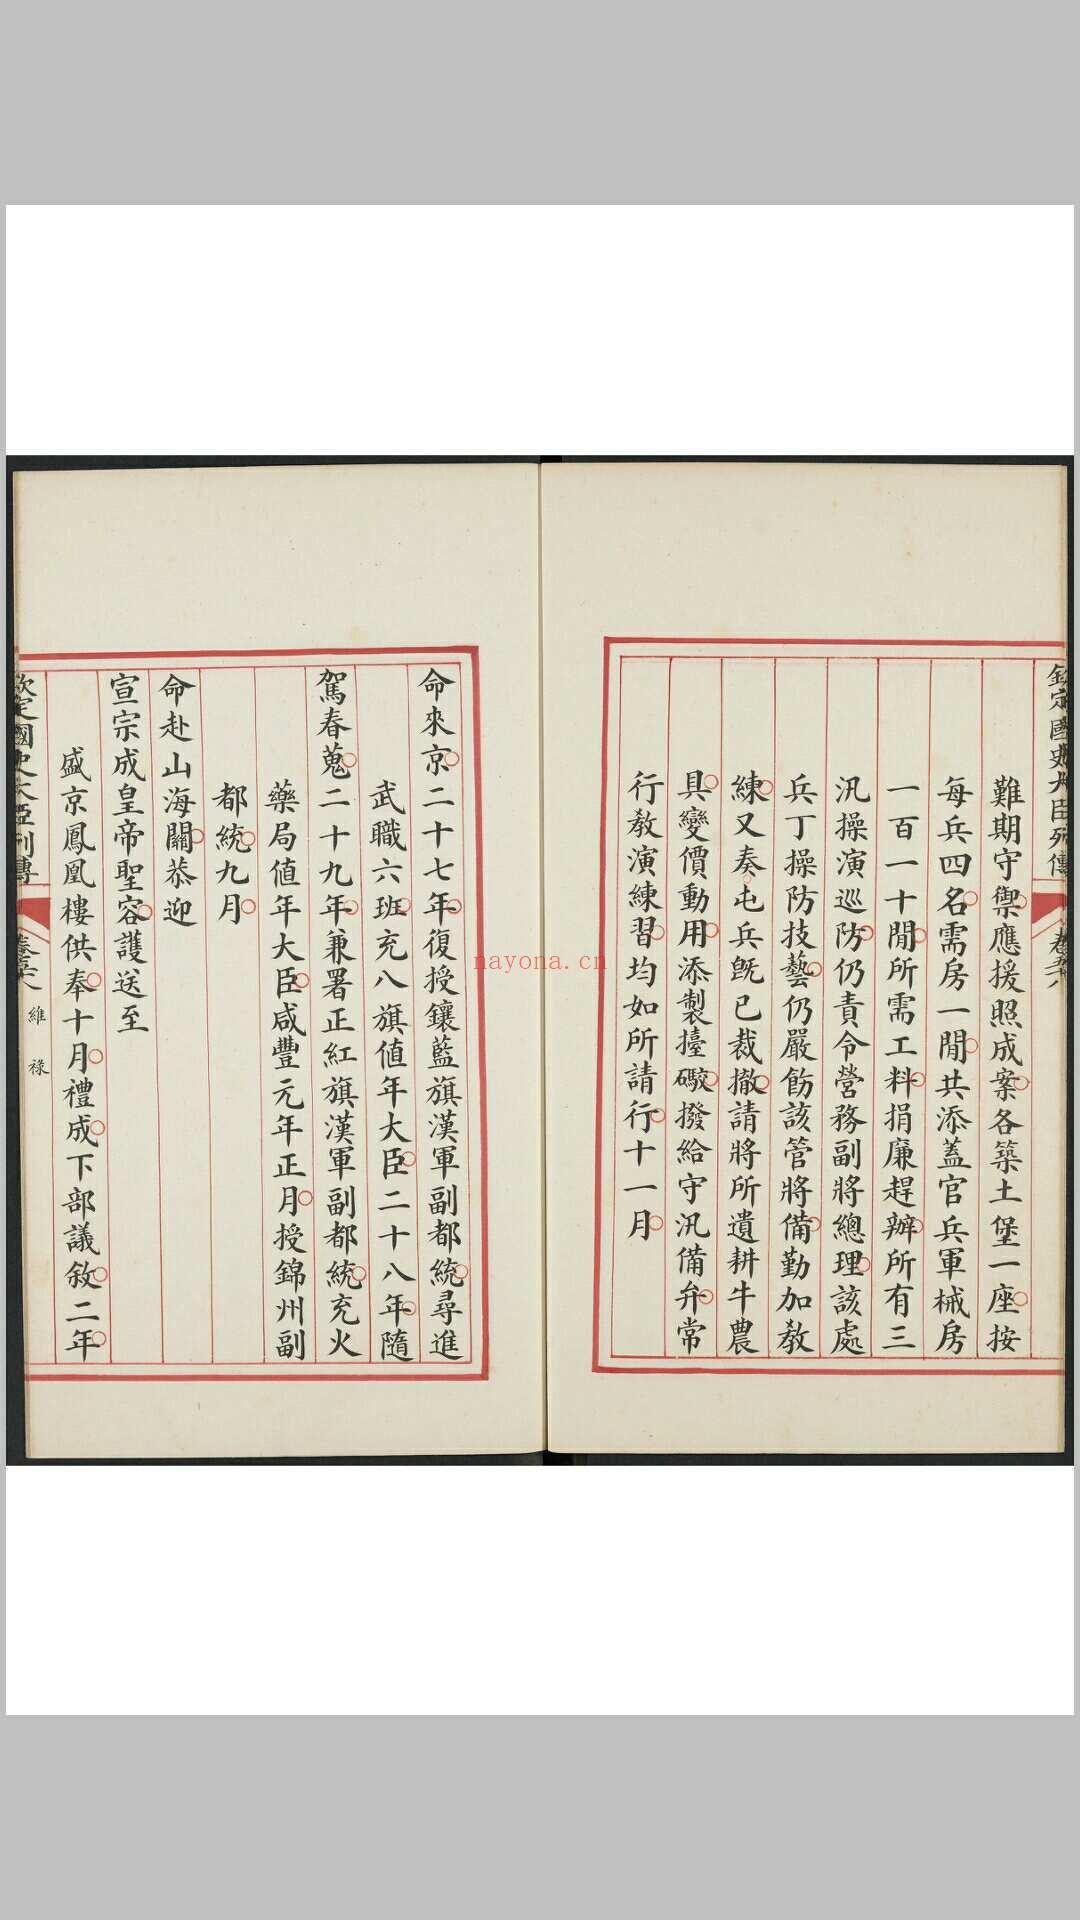 欽定國史大臣列傳 卷五十八
難期守禦應援照成案各築土堡一座按
每兵四名需房一閒共添蓋官兵軍械房
一百一十閒所需工料捐廉趕辦所有三
汛操演巡防仍責令營務副將總理該處
兵丁操防技藝仍嚴飭該管將備勤加敎
練又奏屯兵旣已裁撤請將所遺耕牛農
具變價動用添製擡礮撥給守汛備弁常
行敎演練習均如所請行十一月
命來京二十七年復授鑲藍旗漢軍副都統尋進
武職六班充八旗値年大臣二十八年隨
駕春蒐二十九年兼署正紅旗漢軍副都統充火
藥局値年大臣咸豐元年正月授錦州副
都統九月
命赴山海關恭迎
宣宗成皇帝聖容護送至
盛京鳳凰樓供奉十月禮成下部議敘二年
欽定國史大臣列傳
維祿
nayona.cn